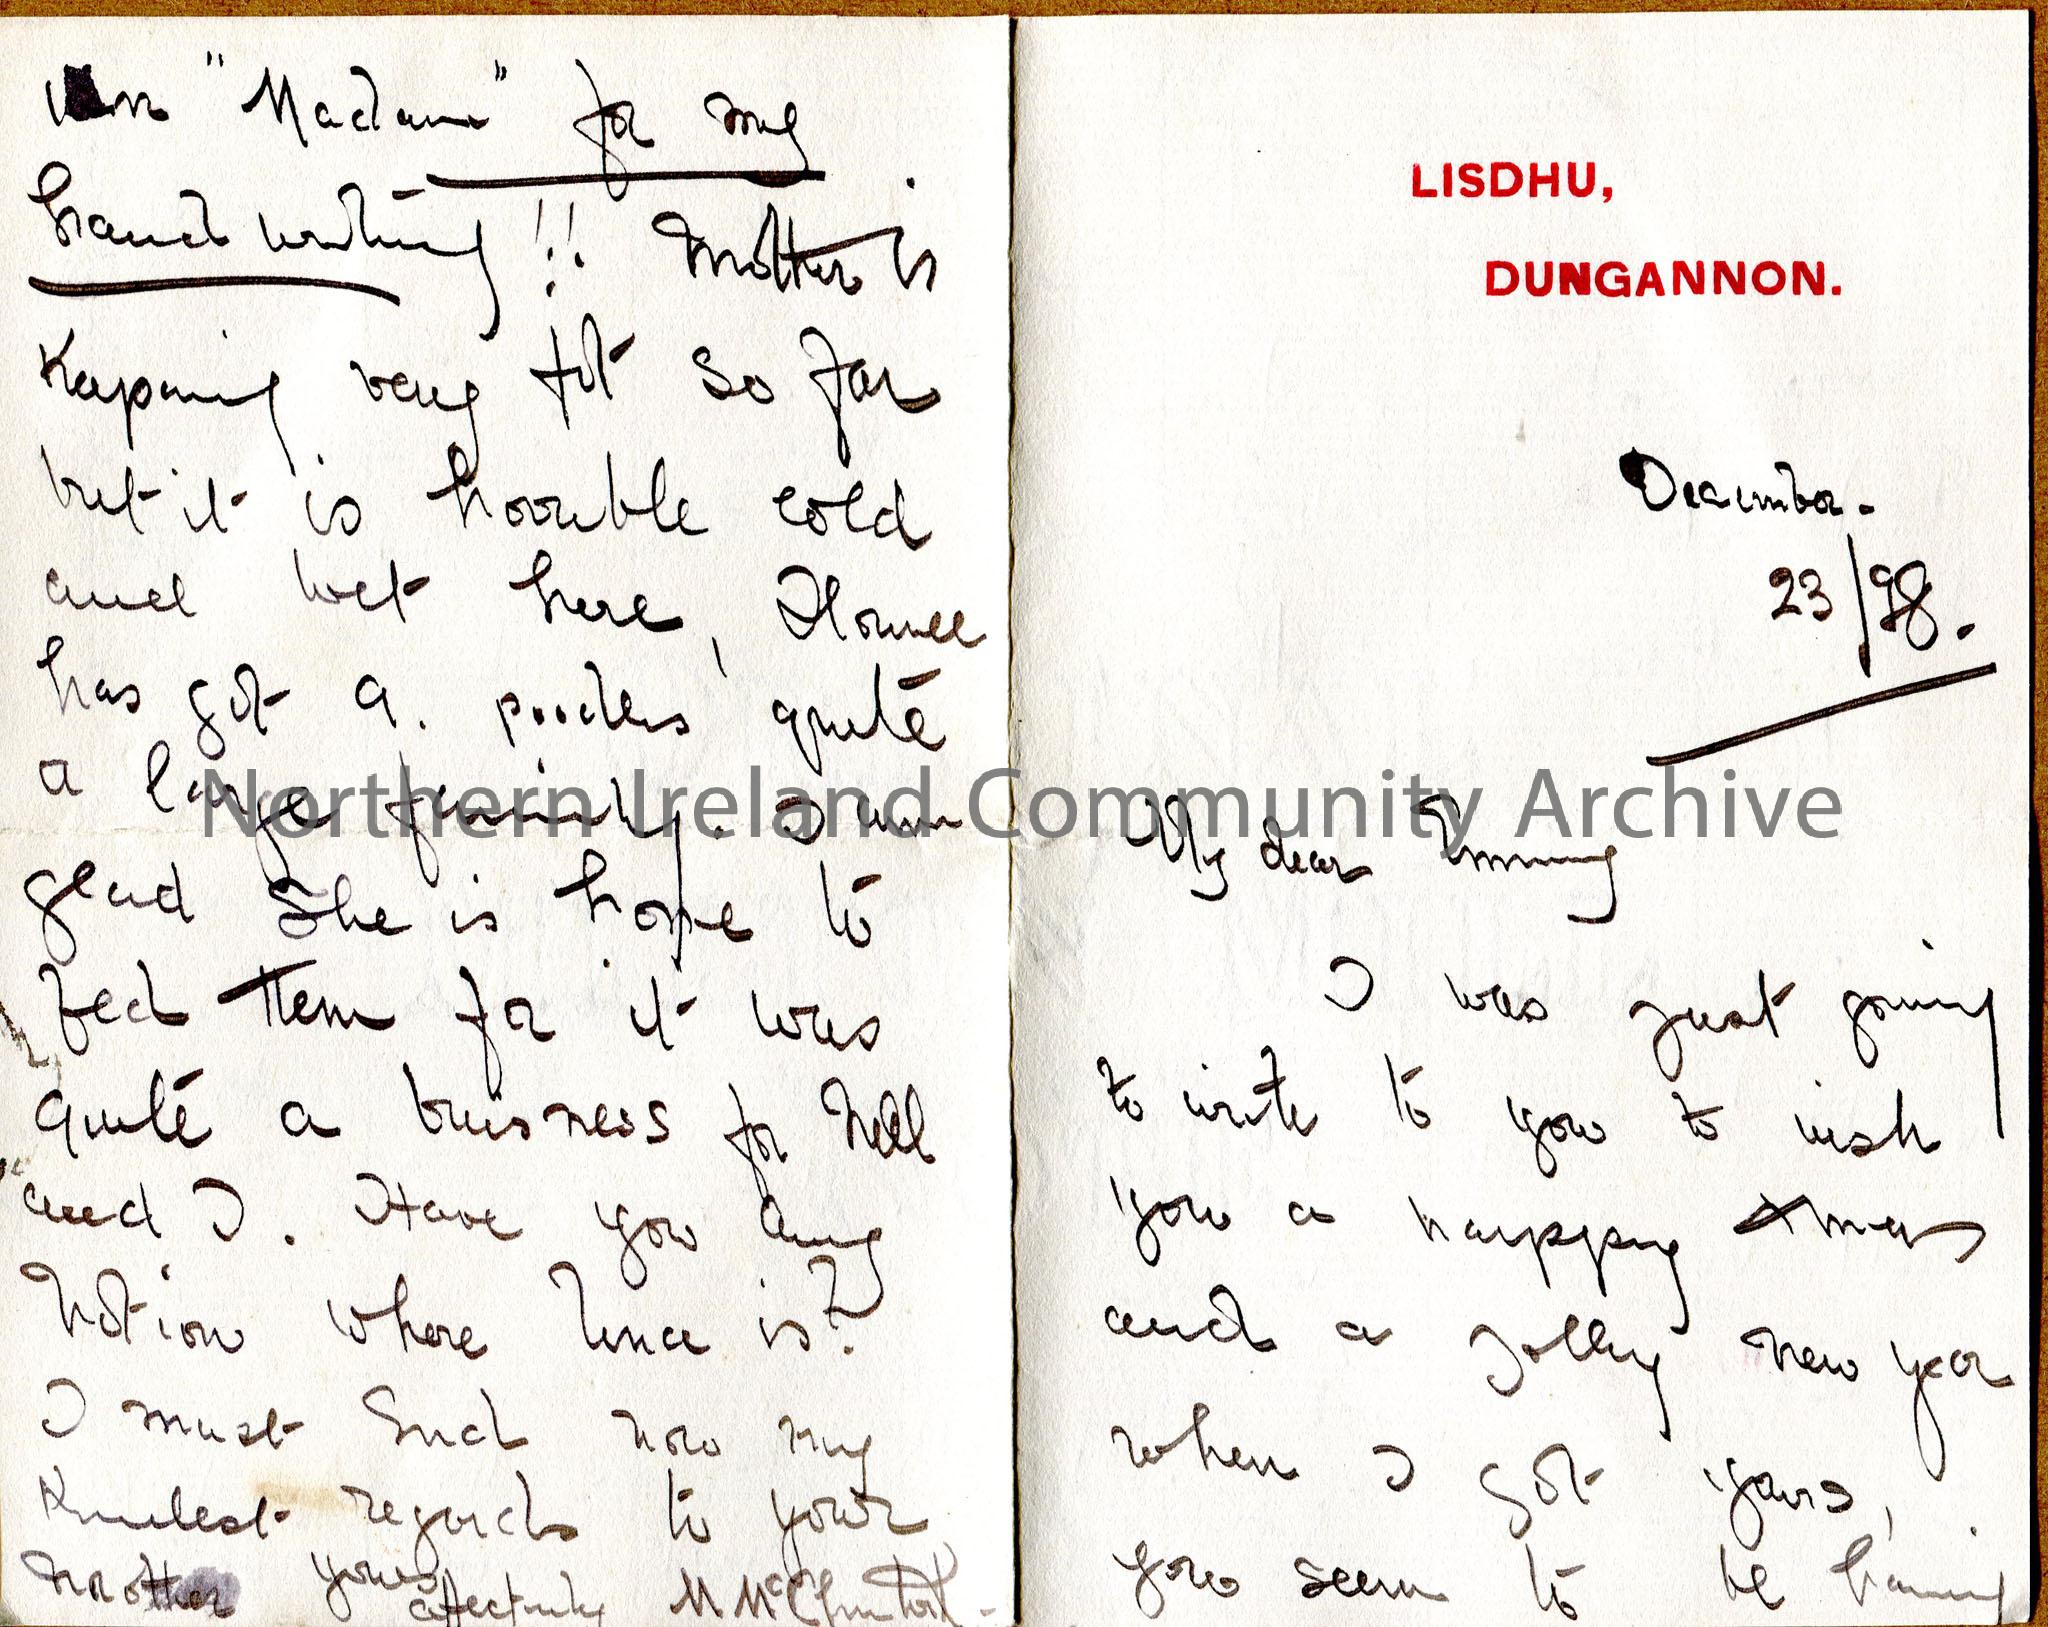 LISDHU,
DUNGANNON.
December.
23/98.
My dear
I was just going
to write to you to wish
you a happy Xmas
and a jolly new year
when I got yours,
you seem to be having
"Madame" for my
hand writing!! Mother is
Keeping very fit so far
but it is horrible cold
and wet here, Florence
has got 9. poodles quite
a large family. I am
glad she is hope to
feed them for it was
quite a buisness for Nell
and I. Have you any
Notion where Lina is?
I must End now my
Kindest regards to your
Mother yours
affectionately M McClintock.
Northern Ireland Community Archive